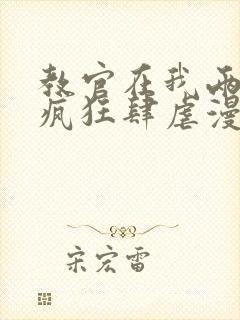 教官在我两
疯狂肆虐漫
宋宏雷